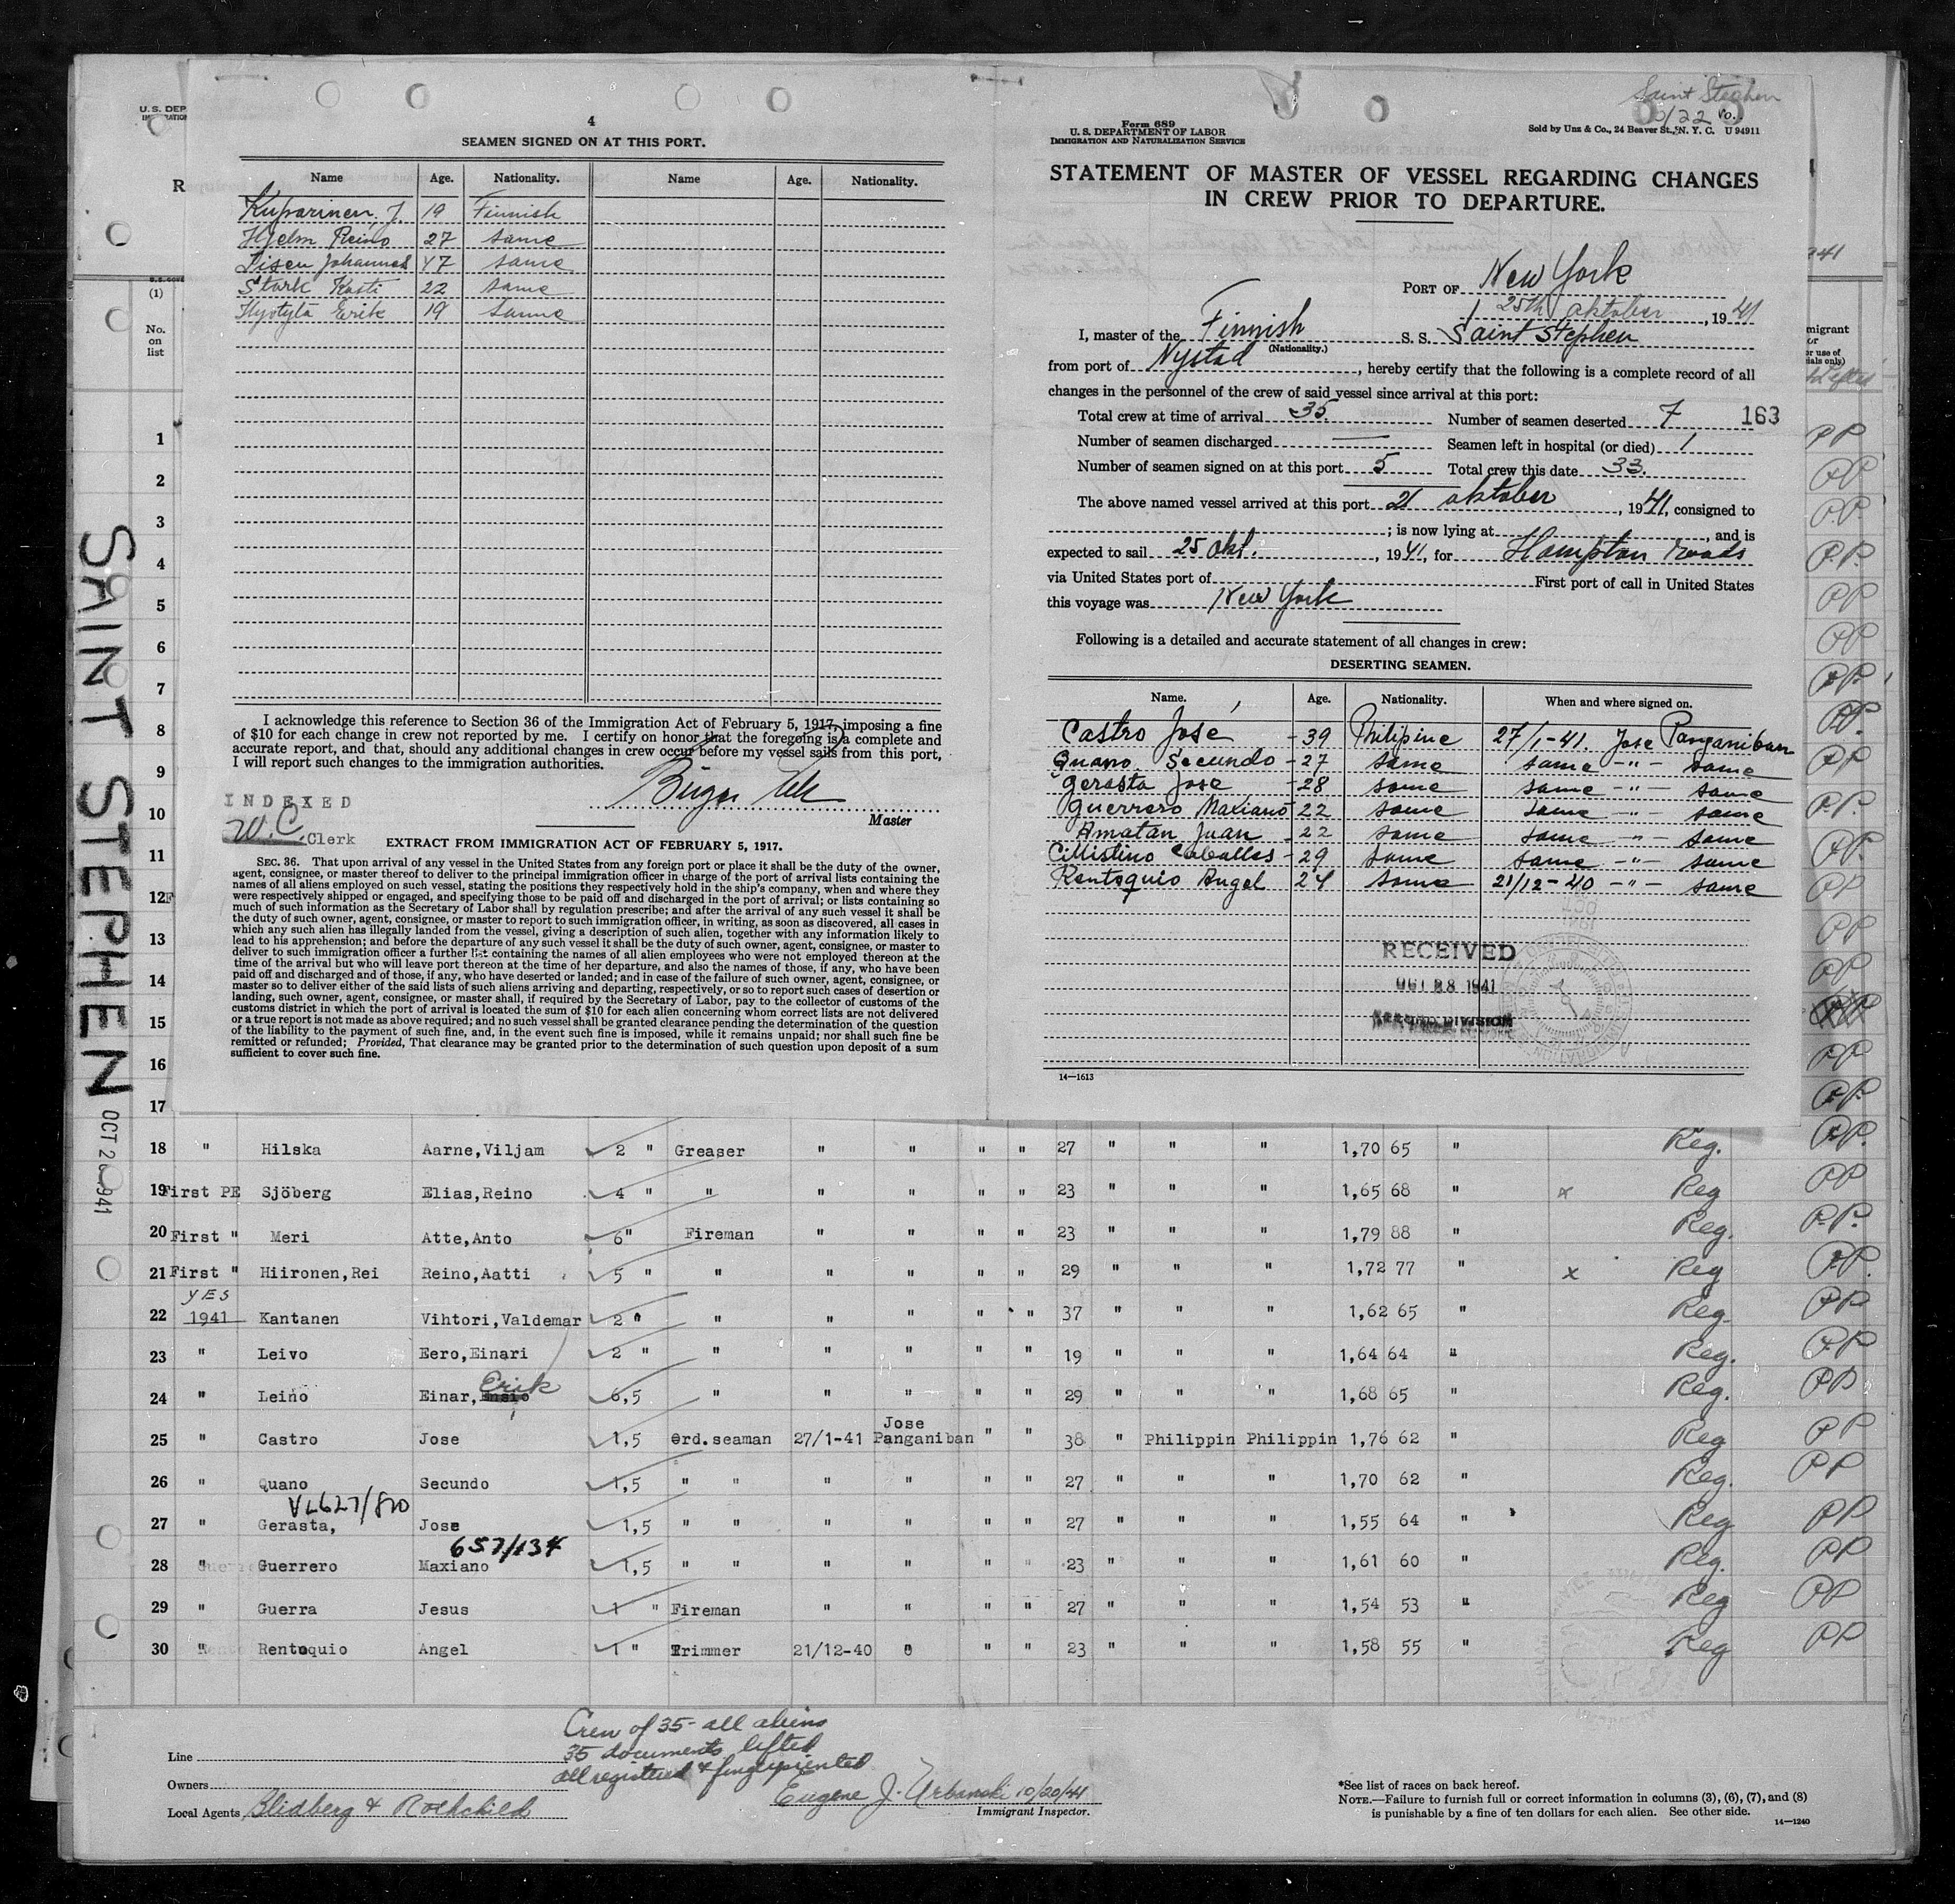 SAINT STEPHEN
OCT 20 1941
U. S. DEP
R
(1)
No.
on
list
1
2
3
4
5
6
7
8
9
10
11
12
13
14
15
16
17
4
SEAMEN SIGNED ON AT THIS PORT.
Name Age. Nationality. Name Age. Nationality.
Kuparinen, J. 19 Finnish
Hjelm Reino 27 same
Johannes 47 same
Stark Kosti 22 same
Hyötylä Erik 19 same
I acknowledge this reference to Section 36 of the Immigration Act of February 5, 1917, imposing a fine
of $10 for each change in crew not reported by me. I certify on honor that the foregoing is a complete and
accurate report, and that, should any additional changes in crew occur before my vessel sails from this port,
I will report such changes to the immigration authorities.
Master
INDEXED
W.C. Clerk
EXTRACT FROM IMMIGRATION ACT OF FEBRUARY 5, 1917.
SEC. 36. That upon arrival of any vessel in the United States from any foreign port or place it shall be the duty of the owner,
agent, consignee, or master thereof to deliver to the principal immigration officer in charge of the port of arrival lists containing the
names of all aliens employed on such vessel, stating the positions they respectively hold in the ship's company, when and where they
were respectively shipped or engaged, and specifying those to be paid off and discharged in the port of arrival; or lists containing so
much of such information as the Secretary of Labor shall by regulation prescribe; and after the arrival of any such vessel it shall be
the duty of such owner, agent, consignee, or master to report to such immigration officer, in writing, as soon as discovered, all cases in
which any such alien has illegally landed from the vessel, giving a description of such alien, together with any information likely to
lead to his apprehension; and before the departure of any such vessel it shall be the duty of such owner, agent, consignee, or master to
deliver to such immigration officer a further list containing the names of all alien employees who were not employed thereon at the
time of the arrival but who will leave port thereon at the time of her departure, and also the names of those, if any, who have been
paid off and discharged and of those, if any, who have deserted or landed; and in case of the failure of such owner, agent, consignee, or
master so to deliver either of the said lists of such aliens arriving and departing, respectively, or so to report such cases of desertion or
landing, such owner, agent, consignee, or master shall, if required by the Secretary of Labor, pay to the collector of customs of the
customs district in which the port of arrival is located the sum of $10 for each alien concerning whom correct lists are not delivered
or a true report is not made as above required; and no such vessel shall be granted clearance pending the determination of the question
of the liability to the payment of such fine, and, in the event such fine is imposed, while it remains unpaid; nor shall such fine be
remitted or refunded; Provided, That clearance may be granted prior to the determination of such question upon deposit of a sum
sufficient to cover such fine.
Saint Stephen
Form 689
U. S. DEPARTMENT OF LABOR
IMMIGRATION AND NATURALIZATION SERVICE
Sold by Unz & Co., 24 Beaver St., N. Y. C. U 94911
STATEMENT OF MASTER OF VESSEL REGARDING CHANGES
IN CREW PRIOR TO DEPARTURE.
PORT OF New York
25th oktober, 1941
I, master of the Finnish S. S. Saint Stephen
(Nationality.)
from port of Nystad, hereby certify that the following is a complete record of all
changes in the personnel of the crew of said vessel since arrival at this port:
Total crew at time of arrival 35 Number of seamen deserted 7 163
Number of seamen discharged — Seamen left in hospital (or died) 1
Number of seamen signed on at this port 5 Total crew this date 33.
The above named vessel arrived at this port 21 oktober, 1941, consigned to
; is now lying at , and is
expected to sail 25 okt., 1941, for Hampton roads
via United States port of First port of call in United States
this voyage was New York
Following is a detailed and accurate statement of all changes in crew:
DESERTING SEAMEN.
Name. Age. Nationality. When and where signed on.
Castro José - 39 Philipine 27/1-41. Jose Panganiban
Quano Secundo - 27 same same -"- same
Gerasta Jose - 28 same same -"- same
Guerrero Maxiano 22 same same -"- same
Amatan Juan - 22 same same -"- same
Cillistino Caballes - 29 same same -"- same
Rentoquio Angel 24 same 21/12-40 -"- same
RECEIVED
OCT 28 1941
DIVISION
14—1613
18 " Hilska Aarne,Viljam 2 " Greaser " " " " 27 " " " 1,70 65 " Reg. PP.
19 First PE Sjöberg Elias,Reino 4 " " " " " " 23 " " " 1,65 68 " x Reg PP
20 First " Meri Atte,Anto 6" Fireman " " " " 23 " " " 1,79 88 " Reg. P.P.
21 First " Hiironen,Rei Reino,Aatti 5 " " " " " " 29 " " " 1,72 77 " x Reg PP.
YES
22 1941 Kantanen Vihtori,Valdemar 2 " " " " " " 37 " " " 1,62 65 " Reg. PP
23 " Leivo Eero,Einari 2 " " " " " " 19 " " " 1,64 64 " Reg. PP
24 " Leino Einar, Erik 6,5 " " " " " 29 " " " 1,68 65 " Reg. PP
25 " Castro Jose 1,5 Ord.seaman 27/1-41 Jose Panganiban " " 38 " Philippin Philippin 1,76 62 " Reg PP
26 " Quano Secundo 1,5 " " " " " " 27 " " " 1,70 62 " Reg. PP
VL627/810
27 " Gerasta, Jose 1,5 " " " " " " 27 " " " 1,55 64 " Reg PP
657/134
28 " Guerrero Maxiano 1,5 " " " " " " 23 " " " 1,61 60 " Reg. PP
29 " Guerra Jesus 1 " Fireman " " " " 27 " " " 1,54 53 " Reg PP
30 " Rentoquio Angel 1 " Trimmer 21/12-40 " " " 23 " " " 1,58 55 " Reg PP
Crew of 35 - all aliens
35 documents lifted
all registered & fingerprinted
Line
Owners
Local Agents Blidberg & Rothchild
Eugene J. Urbanski 10/20/41
Immigrant Inspector.
*See list of races on back hereof.
NOTE.—Failure to furnish full or correct information in columns (3), (6), (7), and (8)
is punishable by a fine of ten dollars for each alien. See other side.
14—1240